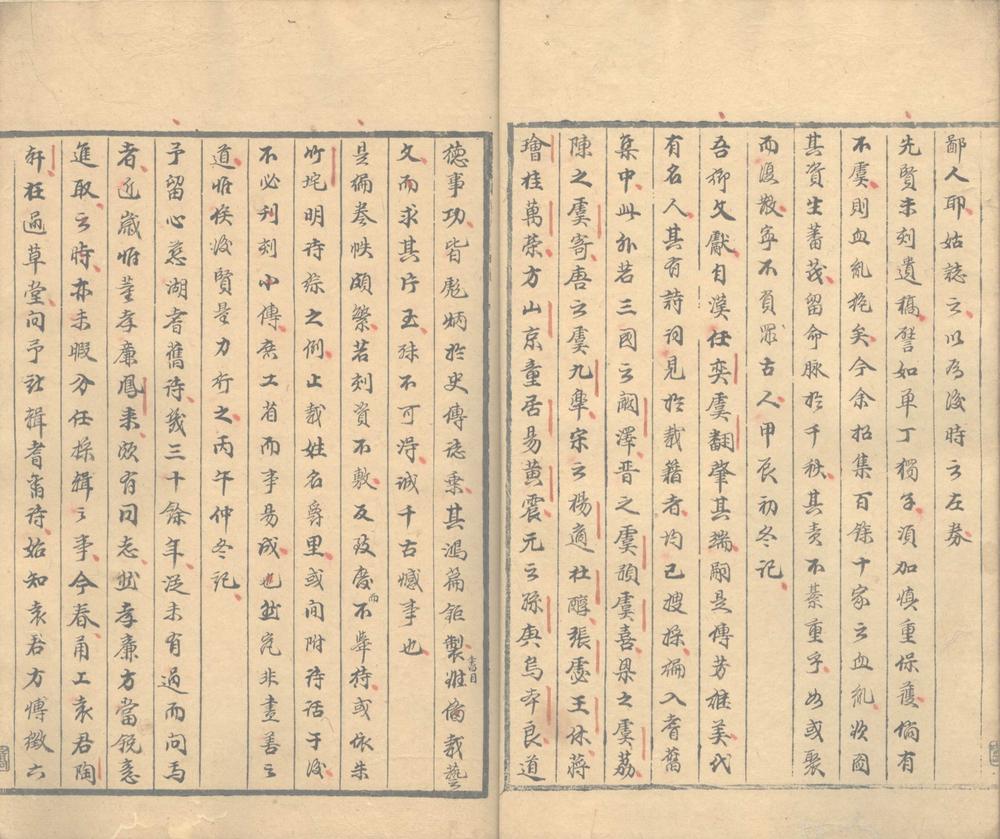 鄙人耶姑誌之以為後時之左券
先賢未刻遺稿譬如單丁獨子須加慎重保護倘有
不虞則血亂挩矣今余招集百餘十家之血亂次圖
其資生蕃茂留命脉於千秋其責不綦重乎如或聚
而復散寧不負眾古人甲辰初冬記
吾鄉文獻自漢任奕虞翻肇其端嗣是傳芳雄美代
有名人其有詩詞見於載籍者均已搜採編入耆舊
集中此外若三國之闞澤晉之虞預虞喜梁之虞荔
陳之虞寄唐之虞九皋宋之楊適杜醇張慮王休蔣
璯桂萬榮方山京童居易黃震元之孫庚烏本良道
德事功皆彪炳於史傳誌乘其鴻篇鉅製雖備載藝
書目
文而求其片玉殊不可得誠千古憾事也
是編卷帙頗繁若刻資不敷及殁废而不舉待或依朱
竹垞明詩綜之例止裁姓名爵里或間附詩話于後
不必刊刻小傳庶工省而事易成也然究非盡善之
道惟俟後賢量力行之丙午仲冬記
予留心慈湖耆舊詩幾三十餘年迄未有過而問焉
者近歲惟董孝廉鳳来頗有同志然孝廉方當銳意
進取之時亦未暇分任採緝之事今春甬工袁君陶
軒枉過草堂問予社輯耆舊詩始知袁君方博徵六